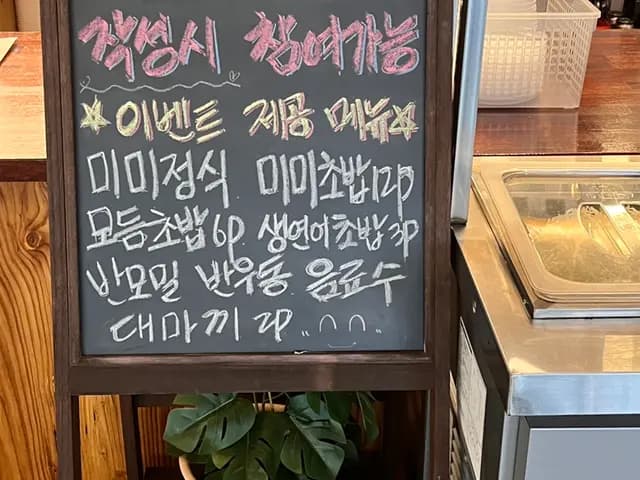 작성시 참여가능
☆이벤트 제공 메뉴☆
미미정식 미미초밥12p
모듬초밥6p 생연어초밥3p
반모밀 반우동 음료수
대마끼 2p